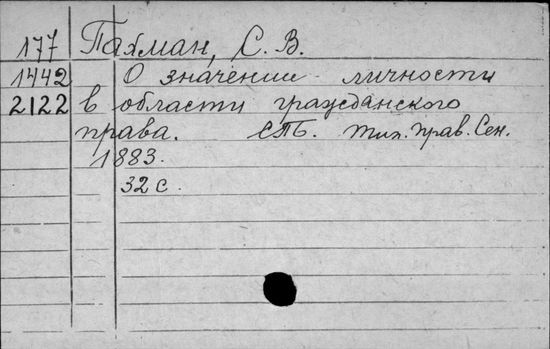 177 Пахман, С. В.
1442 О значении личности
2122 в области гражданского
права. СПб. тип. Прав. Сен.
1883.
32 с.